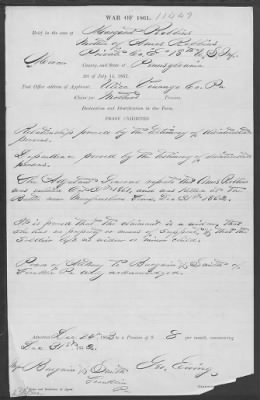 WAR OF 1861.
11049
Brief in the case of Margaret Robbins
Mother of Amos Robbins
Private Co. E 18th U.S. Inf.
Mercer County, and State of Pennsylvania
Act of July 14, 1862.
Post Office address of Applicant: Utica Venango Co. Pa
Claim for Mother's Pension.
Declaration and Identification in due Form.
PROOF EXHIBITED
Relationship proved by the testimony of disinterested
persons.
Dependence proved by the testimony of disinterested
persons.
The Adjutant General reports that Amos Robbins
was enrolled Oct 1861, and was killed in the
Battle near Murfreesboro Tenn. Dec 31st 1862.
It is proved that the claimant is a widow, that
she has no property or means of support, & that the
Soldier left no widow or minor child.
Power of Attorney to Burgwin & Smith of
Franklin Pa duly acknowledged.
Admitted Dec 1863 to a Pension of $ 8 per month, commencing
Dec 31st 1862.
Burgwin & Smith
Franklin
Pa
Geo. Ewing,